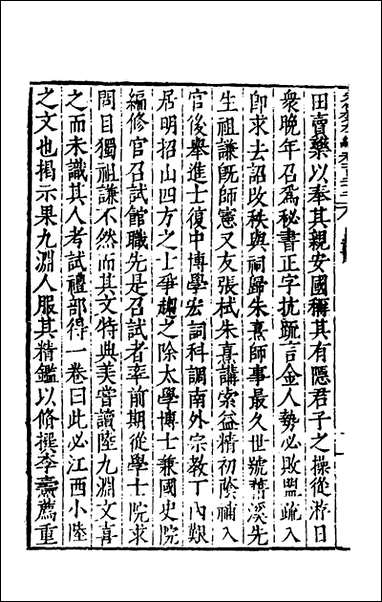 田賣藥以奉其親安國稱其有隱君子之操從游日
衆晩年召爲秘書正字抗䟽言金人勢必敗盟䟽入
卽求去詔改秩與祠歸朱熹師事最久世號籍溪先
生祖謙旣師憲又友張栻朱熹講索益精初蔭補入
官後舉進士復中博學宏詞科調南外宗教丁內艱
居明招山四方之士爭趨之除太學博士兼國史院
編修官召試館職先是召試者率前期從學士院求
問目獨祖謙不然而其文特典美嘗讀陸九淵文喜
之而未識其人考試禮部得一卷曰此必江西小陸
之文也揭示果九淵人服其精鑑以修撰李燾薦重